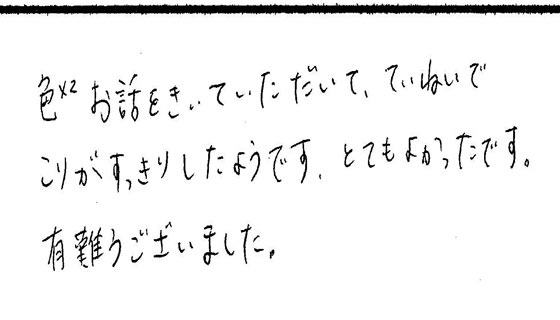 色×2お話をきいていただいて、ていねいで
こりがすっきりしたようです、とてもよかったです。
有難うございました。